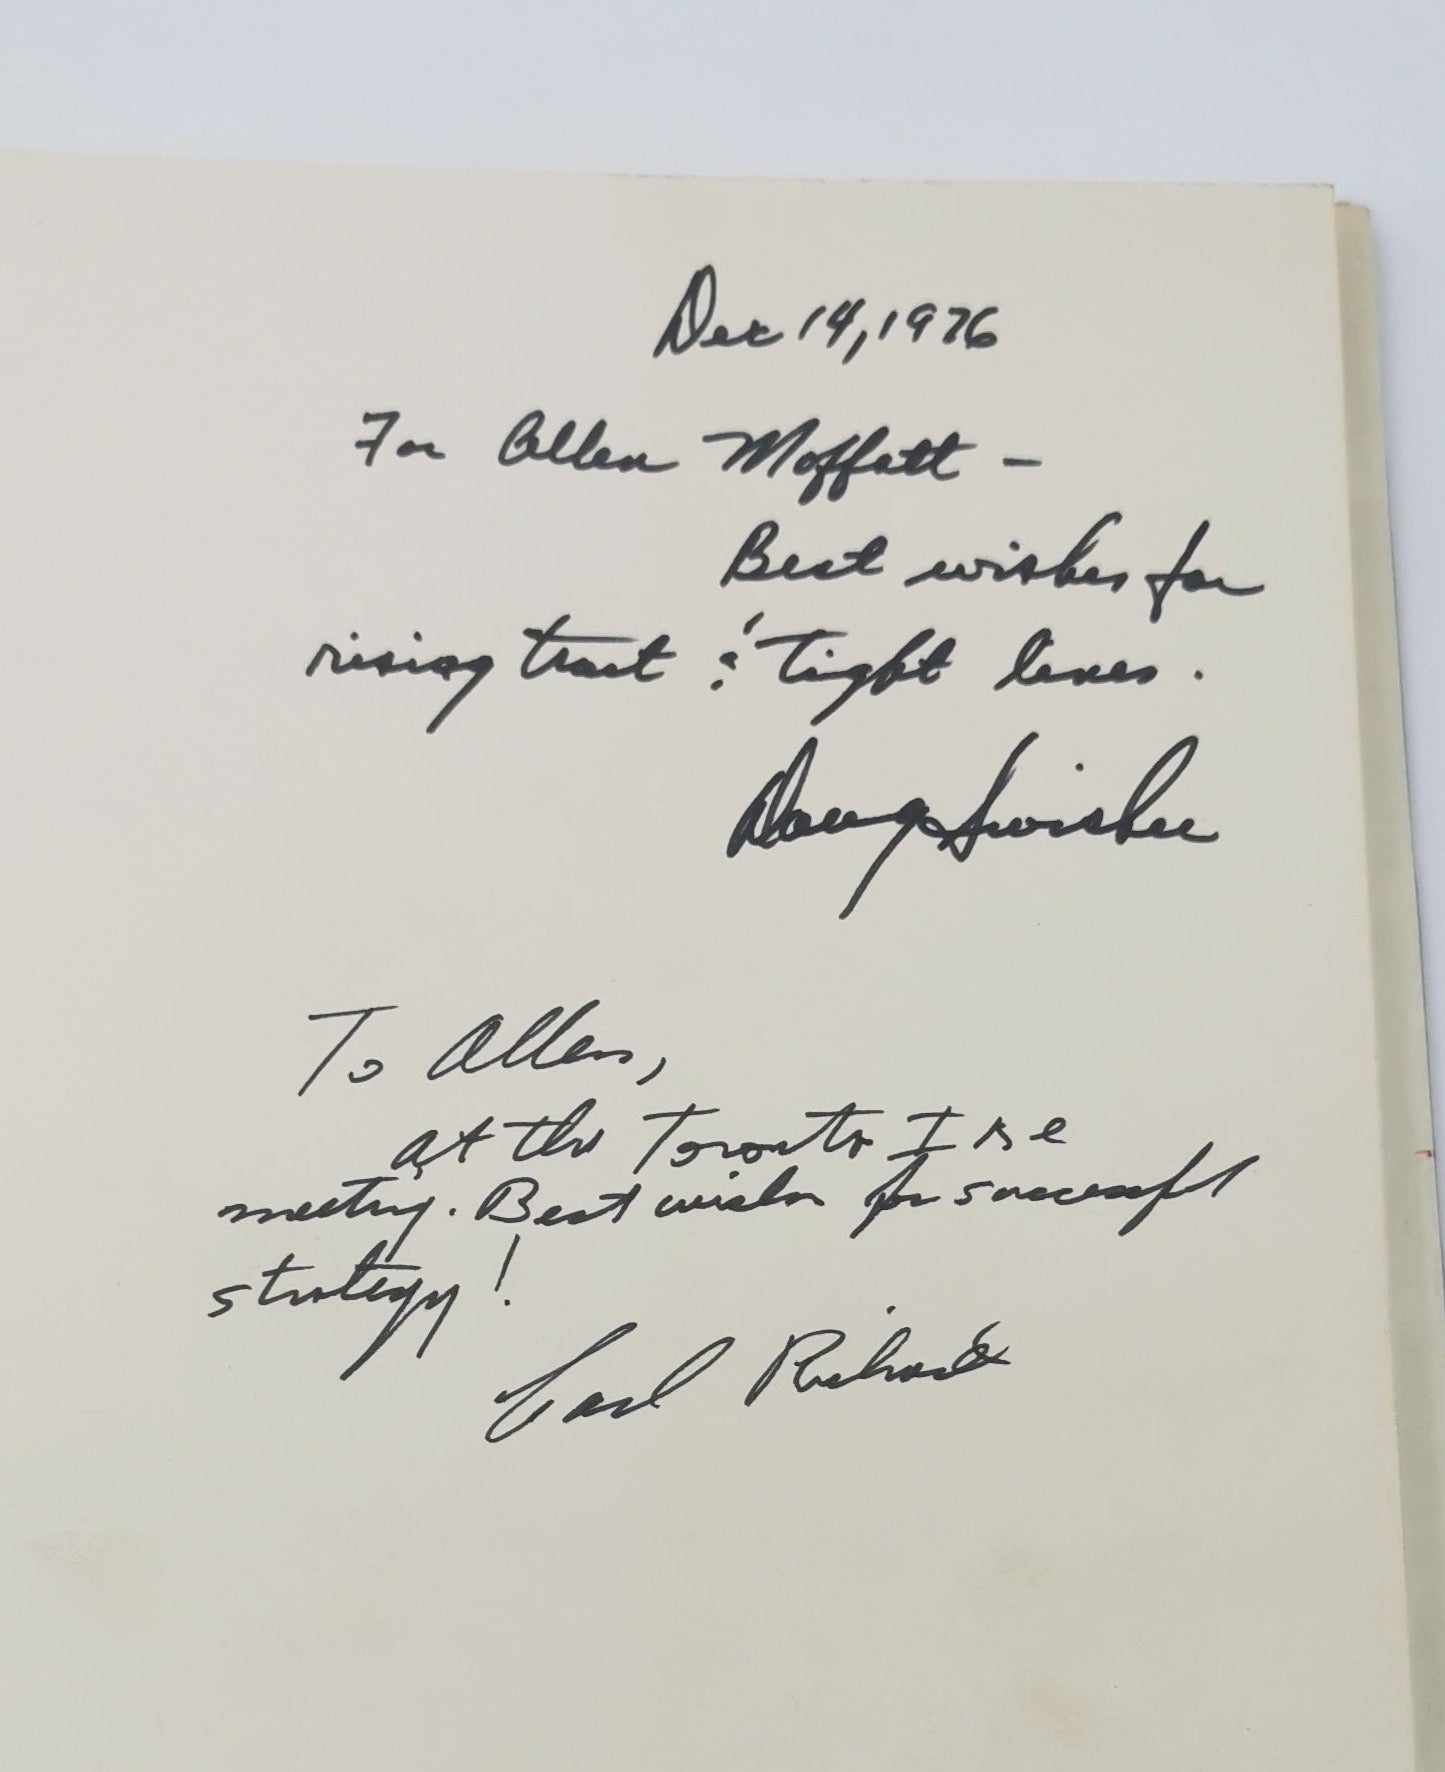 Dec 14, 1976
For Allen Moffatt –
Best wishes for
rising trout & tight lines.
Doug Swisher
To Allen,
at the Toronto
meeting. Best wishes for successful
strategy!
Carl Richards